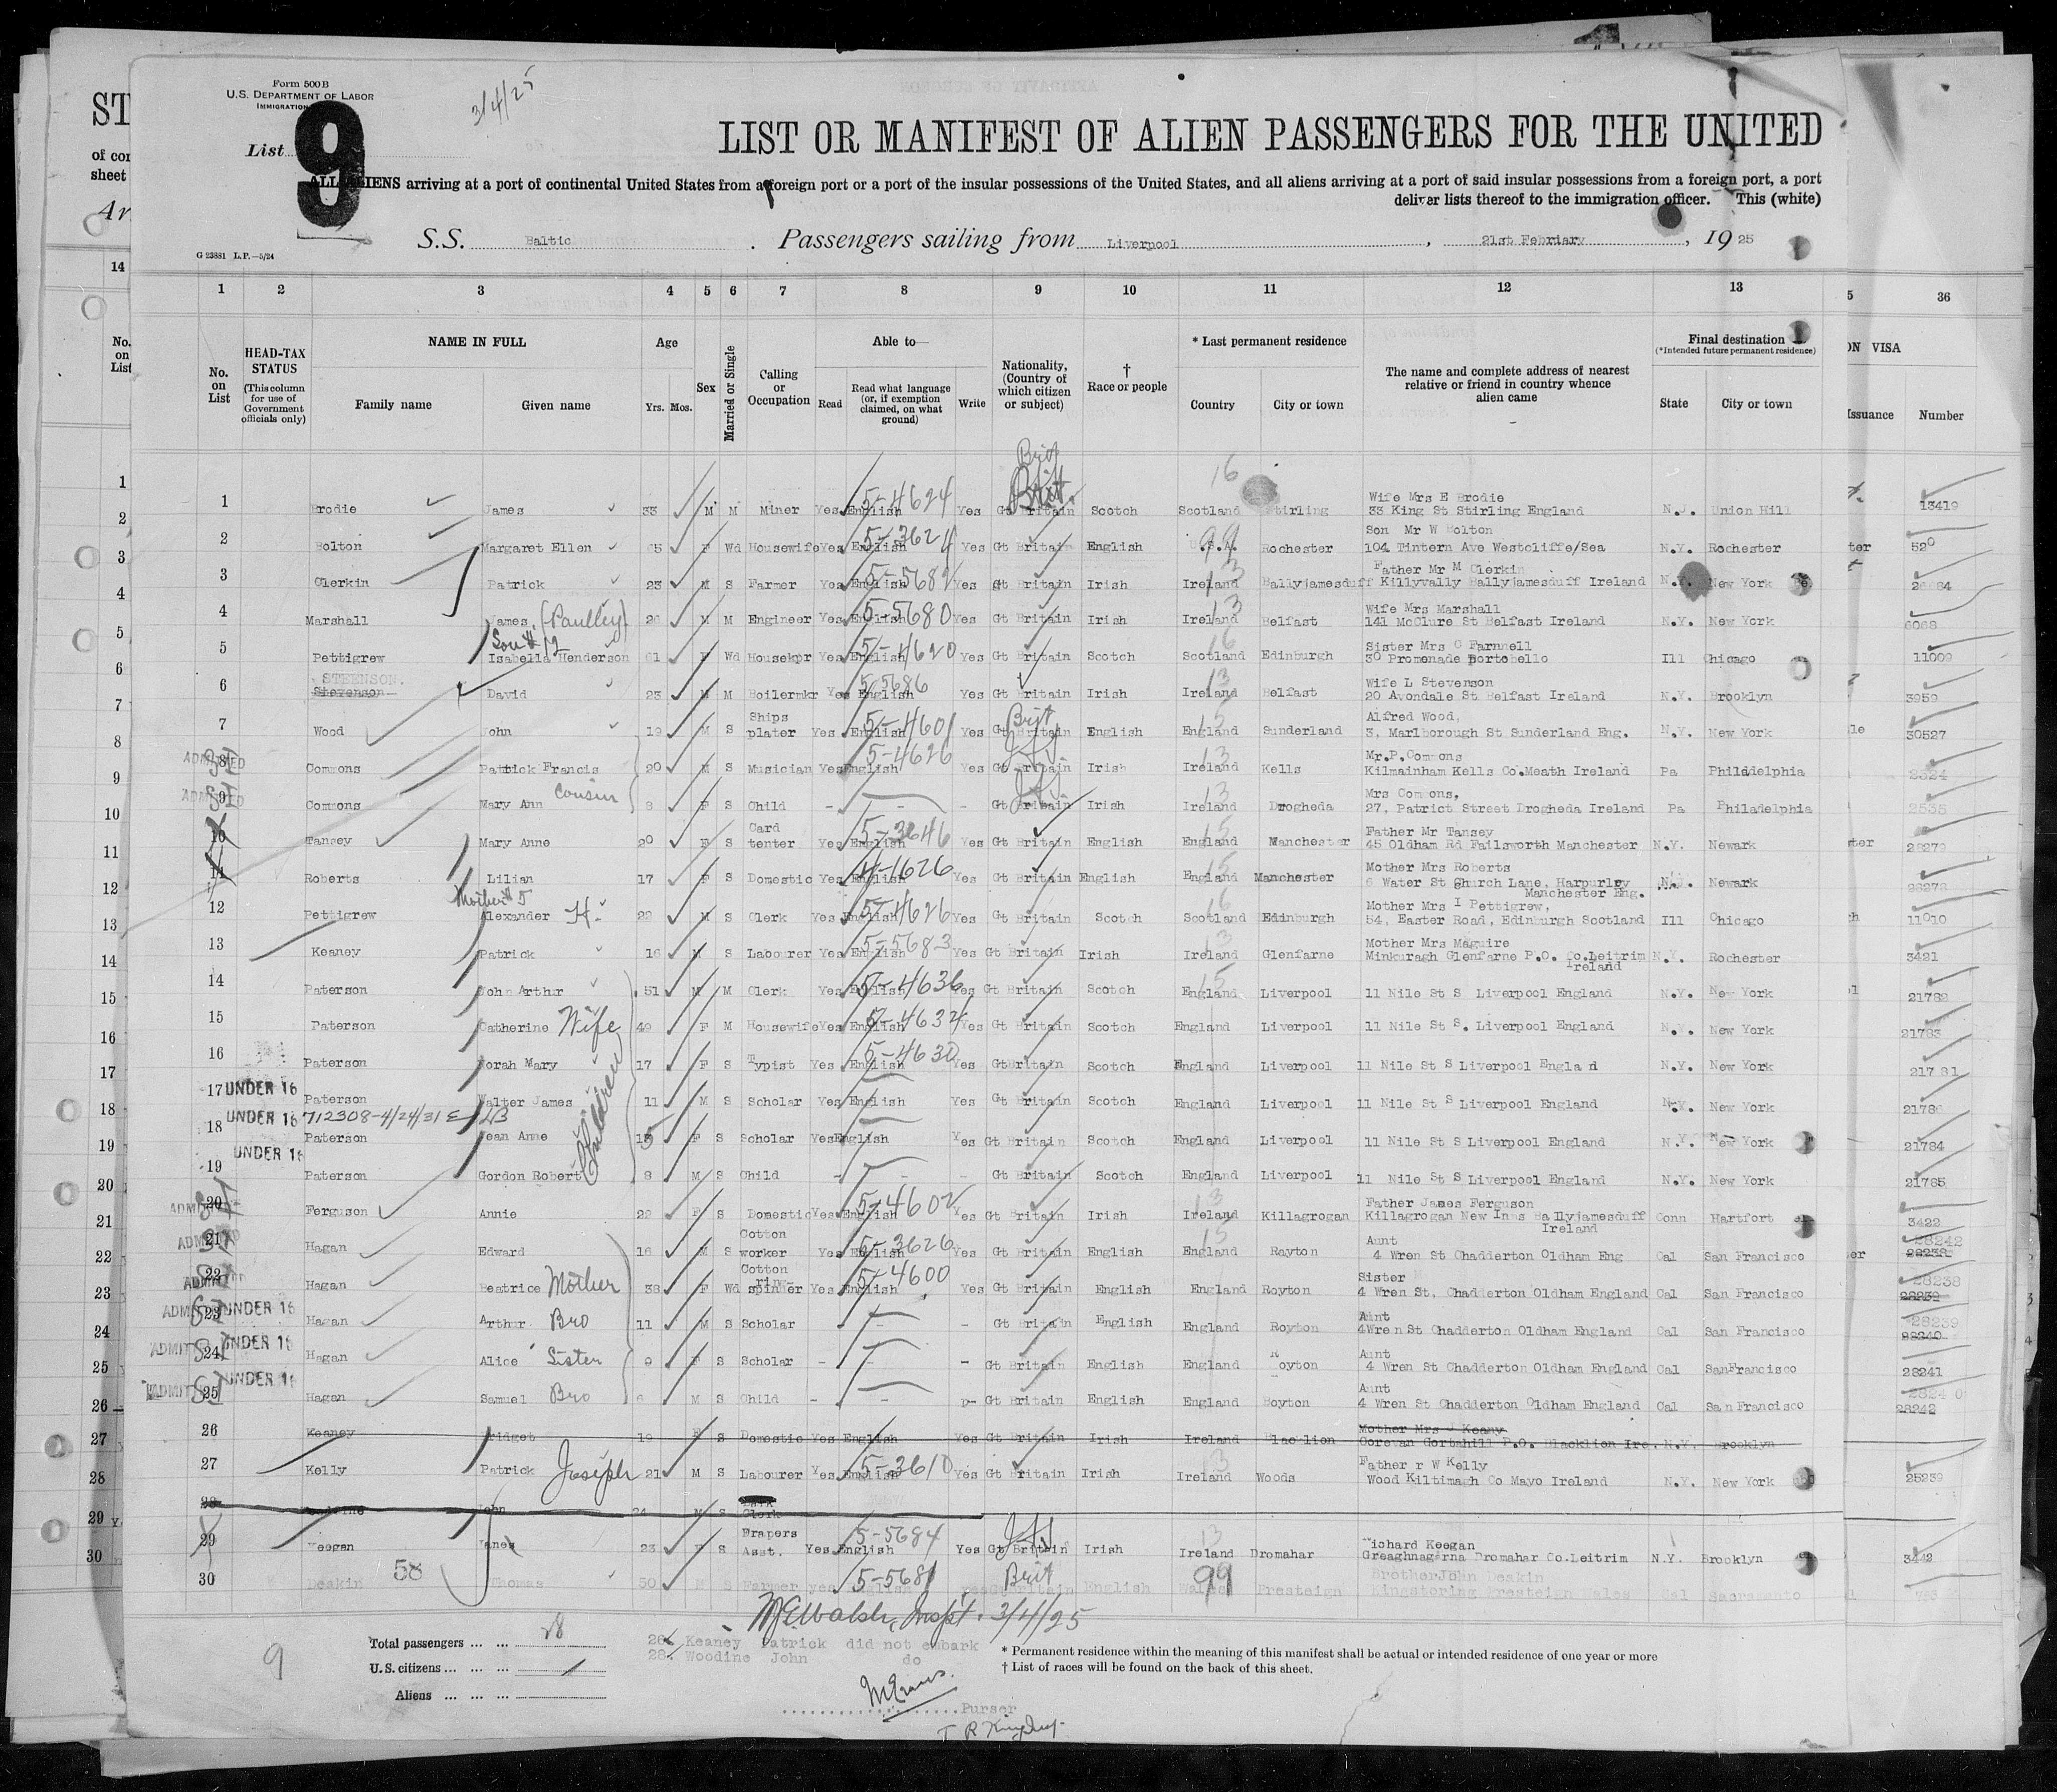 Form 500 B
U.S. DEPARTMENT OF LABOR
IMMIGRATION
3/4/25
List 9
LIST OR MANIFEST OF ALIEN PASSENGERS FOR THE UNITED
ALL ALIENS arriving at a port of continental United States from a foreign port or a port of the insular possessions of the United States, and all aliens arriving at a port of said insular possessions from a foreign port, a port
deliver lists thereof to the immigration officer. This (white)
S.S. Baltic. Passengers sailing from Liverpool, 21st February, 19 25
G 23881 L.P.—5/24
1 2 3 4 5 6 7 8 9 10 11 12 13 36
No. on List
HEAD-TAX STATUS (This column for use of Government officials only)
NAME IN FULL Family name Given name
Age Yrs. Mos.
Sex
Married or Single
Calling or Occupation
Able to— Read Read what language (or, if exemption claimed, on what ground) Write
Nationality, (Country of which citizen or subject)
† Race or people
* Last permanent residence Country City or town
The name and complete address of nearest relative or friend in country whence alien came
Final destination (*Intended future permanent residence) State City or town
ON VISA Issuance Number
1 Brodie James 33 M M Miner Yes English 5-4624 Yes Gt Britain Brit. Scotch Scotland 16 Stirling Wife Mrs E Brodie 33 King St Stirling England N.J. Union Hill 13419
2 Bolton Margaret Ellen 65 F Wd Housewife Yes English 5-3624 Yes Gt Britain English U.S.A. 99 Rochester Son Mr W Bolton 104 Tintern Ave Westcliffe/Sea N.Y. Rochester 520
3 Clerkin Patrick 23 M S Farmer Yes English 5-5682 Yes Gt Britain Irish Ireland 13 Ballyjamesduff Father Mr M Clerkin Killyvally Ballyjamesduff Ireland N.Y. New York 26684
4 Marshall James (Paulley) 26 M M Engineer Yes English 5-5680 Yes Gt Britain Irish Ireland 13 Belfast Wife Mrs Marshall 141 McClure St Belfast Ireland N.Y. New York 6068
5 Pettigrew Son # 12 Isabella Henderson 61 F Wd Housekpr Yes English 5-4620 Yes Gt Britain Scotch Scotland 16 Edinburgh Sister Mrs O Farnnell 30 Promenade Portobello Ill Chicago 11009
6 STEENSON. Stevenson David 23 M M Boilermkr Yes English 5-5686 Yes Gt Britain Irish Ireland 13 Belfast Wife L Stevenson 20 Avondale St Belfast Ireland N.Y. Brooklyn 3959
7 Wood John 19 M S Ships plater Yes English 5-4601 Yes Gt Britain Brit English England 15 Sunderland Alfred Wood, 3, Marlborough St Sunderland Eng. N.Y. New York 30527
8 ADMITTED Commons Patrick Francis 20 M S Musician Yes English 5-4626 Yes Gt Britain Irish Ireland 13 Kells Mr.P.Commons Kilmainham Kells Co.Meath Ireland Pa Philadelphia
9 ADMITTED Commons Mary Ann Cousin 8 F S Child - - - Gt Britain Irish Ireland 13 Drogheda Mrs Commons, 27, Patrict Street Drogheda Ireland Pa Philadelphia 2535
10 Tansey Mary Anne 20 F S Card tenter Yes English 5-3646 Yes Gt Britain English England 15 Manchester Father Mr Tansey 45 Oldham Rd Failsworth Manchester N.Y. Newark 28279
11 Roberts Lilian 17 F S Domestic Yes English 4-1626 Yes Gt Britain English England 15 Manchester Mother Mrs Roberts 6 Water St Church Lane, Harpurley Manchester Eng. N.J. Newark 28278
12 Pettigrew Mother # 5 Alexander H. 22 M S Clerk Yes English 5-4626 Yes Gt Britain Scotch Scotland 16 Edinburgh Mother Mrs I Pettigrew, 54, Easter Road, Edinburgh Scotland Ill Chicago 11010
13 Keaney Patrick 16 M S Labourer Yes English 5-5683 Yes Gt Britain Irish Ireland 13 Glenfarne Mother Mrs Maguire Minkuragh Glenfarne P.O. Co.Leitrim Ireland N.Y. Rochester 3421
14 Paterson John Arthur 51 M M Clerk Yes English 5-4636 Yes Gt Britain Scotch England 15 Liverpool 11 Nile St S Liverpool England N.Y. New York 21782
15 Paterson Catherine Wife 49 F M Housewife Yes English 5-4632 Yes Gt Britain Scotch England Liverpool 11 Nile St S. Liverpool England N.Y. New York 21783
16 Paterson Norah Mary 17 F S Typist Yes English 5-4630 Yes GtBritain Scotch England Liverpool 11 Nile St S Liverpool England N.Y. New York 21781
17 UNDER 16 Paterson Walter James Children 11 M S Scholar Yes English Yes Gt Britain Scotch England Liverpool 11 Nile St S Liverpool England N.Y. New York 21786
18 UNDER 16 712308-4/24/31 Paterson Jean Anne F S Scholar Yes English Yes Gt Britain Scotch England Liverpool 11 Nile St S Liverpool England N.Y. New York 21784
19 UNDER 16 Paterson Gordon Robert 8 M S Child - - - Gt Britain Scotch England Liverpool 11 Nile St S Liverpool England N.Y. New York 21785
20 ADMITTED Ferguson Annie 22 F S Domestic Yes English 5-4602 Yes Gt Britain Irish Ireland 13 Killagrogan Father James Ferguson Killagrogan New Inns Ballyjamesduff Ireland Conn Hartfort 3422
21 ADMITTED Hagan Edward 16 M S Cotton worker Yes English 5-3626 Yes Gt Britain English England 15 Rayton Aunt 4 Wren St Chadderton Oldham Eng Cal San Francisco 28242
22 ADMITTED Hagan Beatrice Mother 38 F Wd Cotton ring spinner Yes English 5-4600 Yes Gt Britain English England Royton Sister 4 Wren St. Chadderton Oldham England Cal San Francisco 28238 28239
23 ADMITTED UNDER 16 Hagan Arthur Bro 11 M S Scholar - - - Gt Britain English England Royton Aunt 4Wren St Chadderton Oldham England Cal San Francisco 28239 28240
24 ADMITTED UNDER 16 Hagan Alice Sister 9 F S Scholar - - - Gt Britain English England Royton Aunt 4 Wren St Chadderton Oldham England Cal SanFrancisco 28241
25 ADMITTED UNDER 16 Hagan Samuel Bro 6 M S Child - - - Gt Britain English England Royton Aunt 4 Wren St Chadderton Oldham England Cal San Francisco 28240 28242
26 Keaney Bridget 19 F S Domestic Yes English Yes Gt Britain Irish Ireland Blacklion Mother Mrs J Keany Gorevan Gortahill P.O. Blacklion Ire. N.Y. Brooklyn
27 Kelly Patrick Joseph 21 M S Labourer Yes English 5-3610 Yes Gt Britain Irish Ireland 13 Woods Father r W Kelly Wood Kiltimagh Co Mayo Ireland N.Y. New York 25239
28 John 24 M S Clerk
29 Keegan 23 F S Drapers Asst. Yes English 5-5684 Yes Gt Britain Irish Ireland 13 Dromahar Richard Keegan Greaghnagarna Dromahar Co.Leitrim N.Y. Brooklyn 3442
30 Deakin 58 Thomas 50 M S Farmer yes English 5-5681 yes Gt Britain Brit English Wales 99 Presteign Brother John Deakin Presteign Wales Cal Sacramento
Walsh, Inspt. 3/4/25
9
Total passengers ... ... 28
U.S. citizens ... ... ...
Aliens ... ... ...
26. Keaney Patrick did not embark
28. Woodine John do
Purser
* Permanent residence within the meaning of this manifest shall be actual or intended residence of one year or more
† List of races will be found on the back of this sheet.